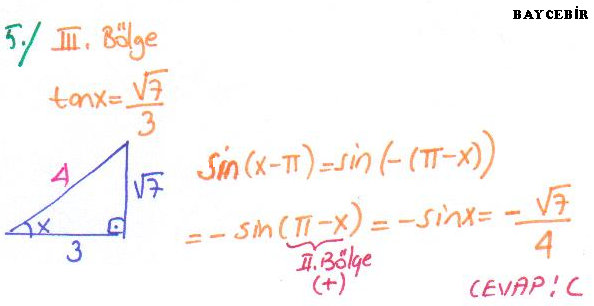 BAYCEBİR
5./ III. Bölge
tanx = √7/3
4
√7
x
3
sin(x-π) = sin(-(π-x))
= - sin(π-x) = - sinx = - √7/4
II. Bölge
(+)
CEVAP: C